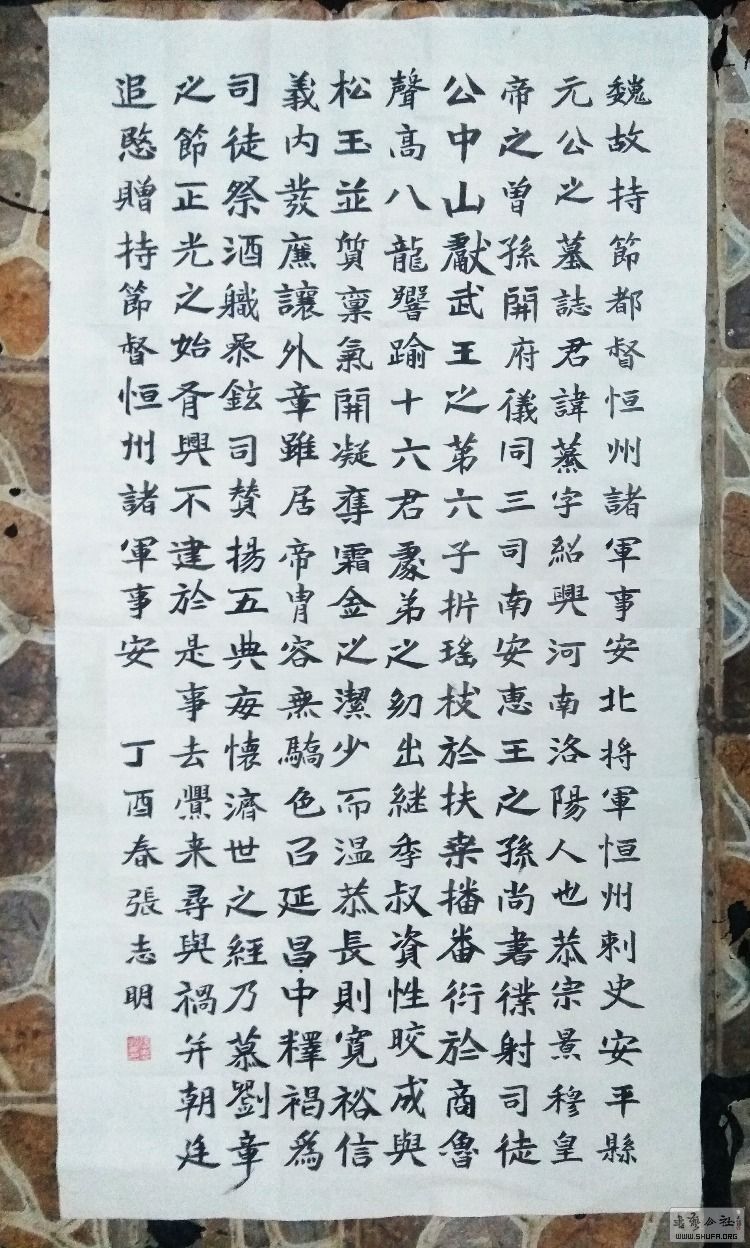 魏故持節都督恒州諸軍事安北将軍恒州刺史安平縣
元公之墓誌君諱蒸字紹興河南洛陽人也恭宗景穆皇
帝之曽孫開府儀同三司南安惠王之孫尚書僕射司徒
公中山獻武王之第六子折瑤枝於扶桒播畨衍於商魯
聲高八龍響踰十六君處弟之幼出継季叔資性皎成與
松玉並質稟氣開凝奪霜金之潔少而温恭長則寛裕信
義内發廉讓外章雖居帝胄容無驕色召延昌中釋褐為
司徒祭酒職叅鉉司賛揚五典每懐濟世之經乃慕劉章
之節正光之始胥興不建於是事去釁来尋與禍并朝廷
追愍贈持節督恒州諸軍事安
丁酉春張志明
書藝公社
WWW.SHUFA.ORG